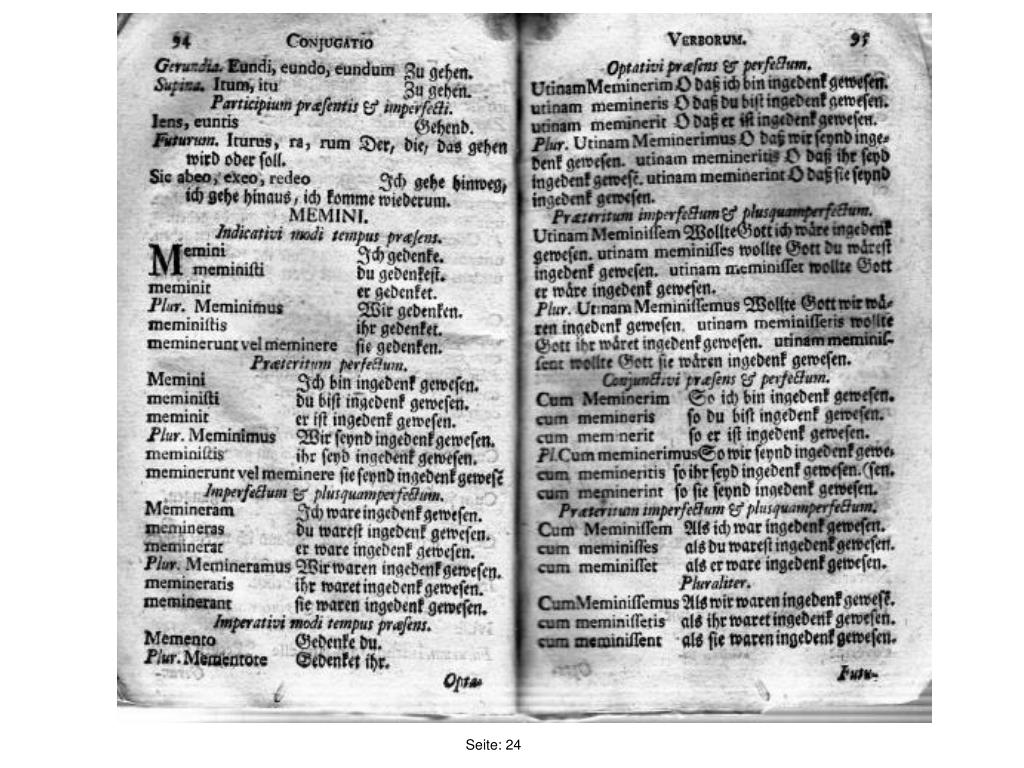 94 CONJUGATIO
Gerundia. Eundi, eundo, eundum Zu gehen.
Supina. Itum, itu Zu gehen.
Participium præsentis & imperfecti.
Iens, euntis Gehend.
Futurum. Iturus, ra, rum Der, die, das gehen
wird oder soll.
Sic abeo, exeo, redeo Ich gehe hinweg,
ich gehe hinaus, ich komme wiederum.
MEMINI.
Indicativi modi tempus præsens.
Memini Ich gedenke.
meministi du gedenkest.
meminit er gedenket.
Plur. Meminimus Wir gedenken.
meministis ihr gedenket.
meminerunt vel meminere sie gedenken.
Præteritum perfectum.
Memini Ich bin ingedenk gewesen.
meministi du bist ingedenk gewesen.
meminit er ist ingedenk gewesen.
Plur. Meminimus Wir seynd ingedenk gewesen.
meministis ihr seyd ingedenk gewesen.
meminerunt vel meminere sie seynd ingedenk gewesẽ
Imperfectum & plusquamperfectum.
Memineram Ich ware ingedenk gewesen.
memineras du warest ingedenk gewesen.
meminerat er ware ingedenk gewesen.
Plur. Memineramus Wir waren ingedenk gewesen.
memineratis ihr waret ingedenk gewesen.
meminerant sie waren ingedenk gewesen.
Imperativi modi tempus præsens.
Memento Gedenke du.
Plur. Mementote Gedenket ihr.
Opta-
VERBORUM. 95
Optativi præsens & perfectum.
Utinam Meminerim O daß ich bin ingedenk gewesen.
utinam memineris O daß du bist ingedenk gewesen.
utinam meminerit O daß er ist ingedenk gewesen.
Plur. Utinam Meminerimus O daß wir seynd inge-
denk gewesen. utinam memineritis O daß ihr seyd
ingedenk gewesẽ. utinam meminerint O daß sie seynd
ingedenk gewesen.
Præteritum imperfectum & plusquamperfectum.
Utinam Meminissem Wollte Gott ich wäre ingedenk
gewesen. utinam meminisses wollte Gott du wärest
ingedenk gewesen. utinam meminisset wollte Gott
er wäre ingedenk gewesen.
Plur. Utinam Meminissemus Wollte Gott wir wä-
ren ingedenk gewesen. utinam meminissetis wollte
Gott ihr wäret ingedenk gewesen. utinam meminis-
sent wollte Gott sie wären ingedenk gewesen.
Conjunctivi præsens & perfectum.
Cum Meminerim So ich bin ingedenk gewesen.
cum memineris so du bist ingedenk gewesen.
cum meminerit so er ist ingedenk gewesen.
Pl. Cum meminerimus So wir seynd ingedenk gewe-
cum memineritis so ihr seyd ingedenk gewesen. (sen.
cum meminerint so sie seynd ingedenk gewesen.
Præteritum imperfectum & plusquamperfectum.
Cum Meminissem Als ich war ingedenk gewesen.
cum meminisses als du warest ingedenk gewesen.
cum meminisset als er ware ingedenk gewesen.
Pluraliter.
Cum Meminissemus Als wir waren ingedenk gewesẽ.
cum meminissetis als ihr waret ingedenk gewesen.
cum meminissent als sie waren ingedenk gewesen.
Futu-
Seite: 24